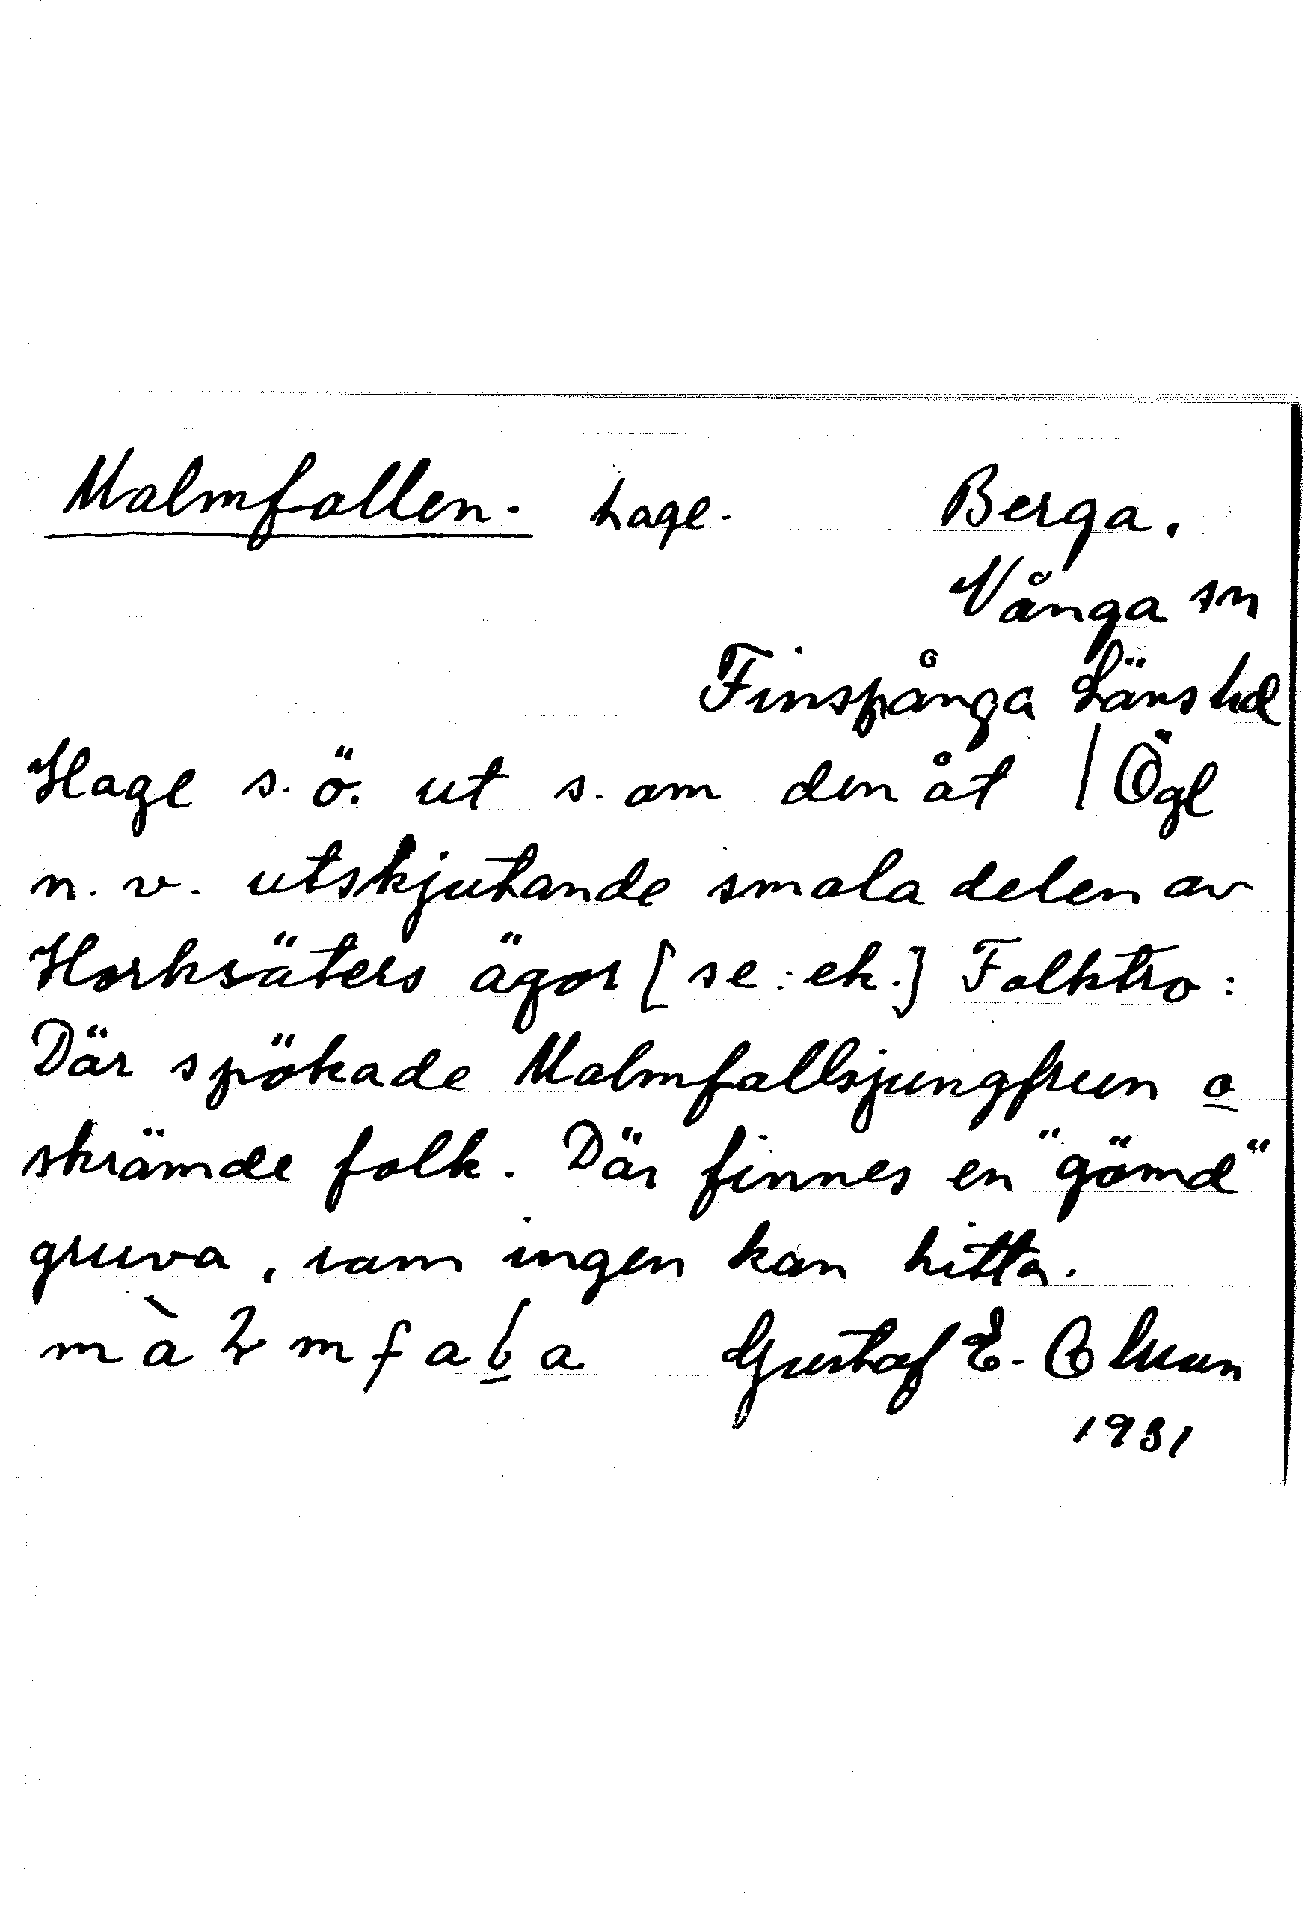 Malmfallen. hage. Berga.
Vånga sn
Finspånga Läns hd
Hage s. ö. ut s. om den åt / Ögl
n. v. utskjutande smala delen av
Horksäters ägor [se: ek.] Folktro:
Där spökade Malmfallsjungfrun o
skrämde folk. Där finnes en "gömd"
gruva, som ingen kan hitta.
Gustaf E.
1931